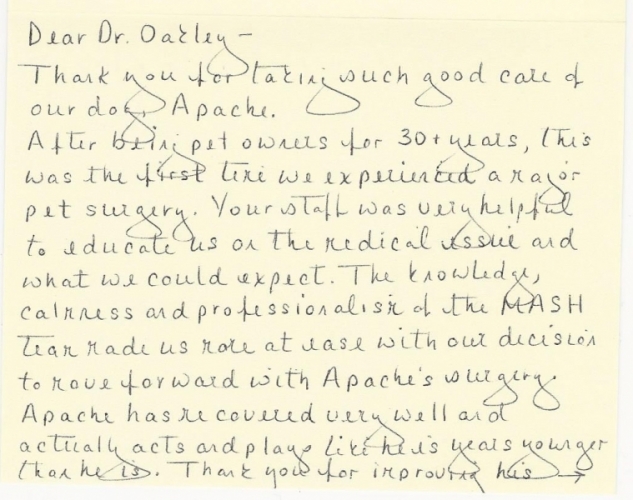 Dear Dr. Oakley -
Thank you for taking such good care of
our dog, Apache.
After being pet owners for 30+ years, this
was the first time we experienced a major
pet surgery. Your staff was very helpful
to educate us on the medical issue and
what we could expect. The knowledge,
calmness and professionalism of the MASH
team made us more at ease with our decision
to move forward with Apache's surgery.
Apache has recovered very well and
actually acts and plays like he is years younger
than he is. Thank you for improving his →